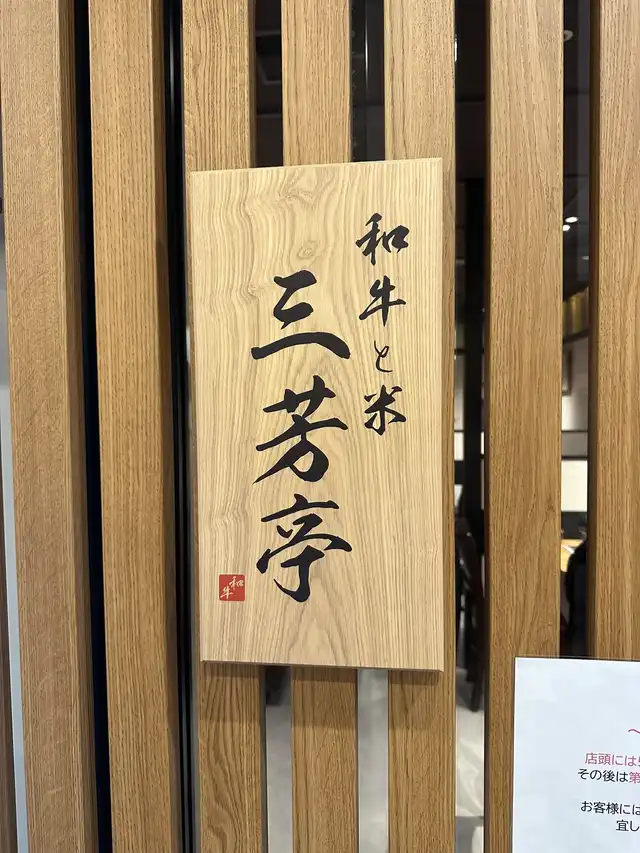 和牛と米
三芳亭
和牛
店頭には
その後は第
お客様には
宜し